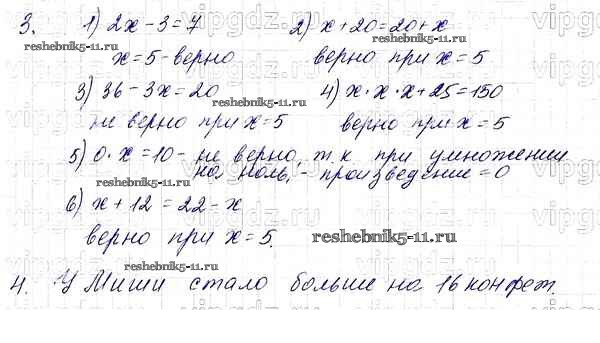 3. 1) 2x - 3 = 7 2) x + 20 = 20 + x
reshebnik5-11.ru
x = 5 - верно верно при x = 5
3) 36 - 3x = 20 4) x · x · x + 25 = 150
reshebnik5-11.ru
не верно при x = 5 верно при x = 5
5) 0 · x = 10 - не верно, т.к. при умножении
на ноль, - произведение = 0
6) x + 12 = 22 - x
верно при x = 5.
reshebnik5-11.ru
reshebnik5-11.ru
4. У Миши стало больше на 16 конфет.